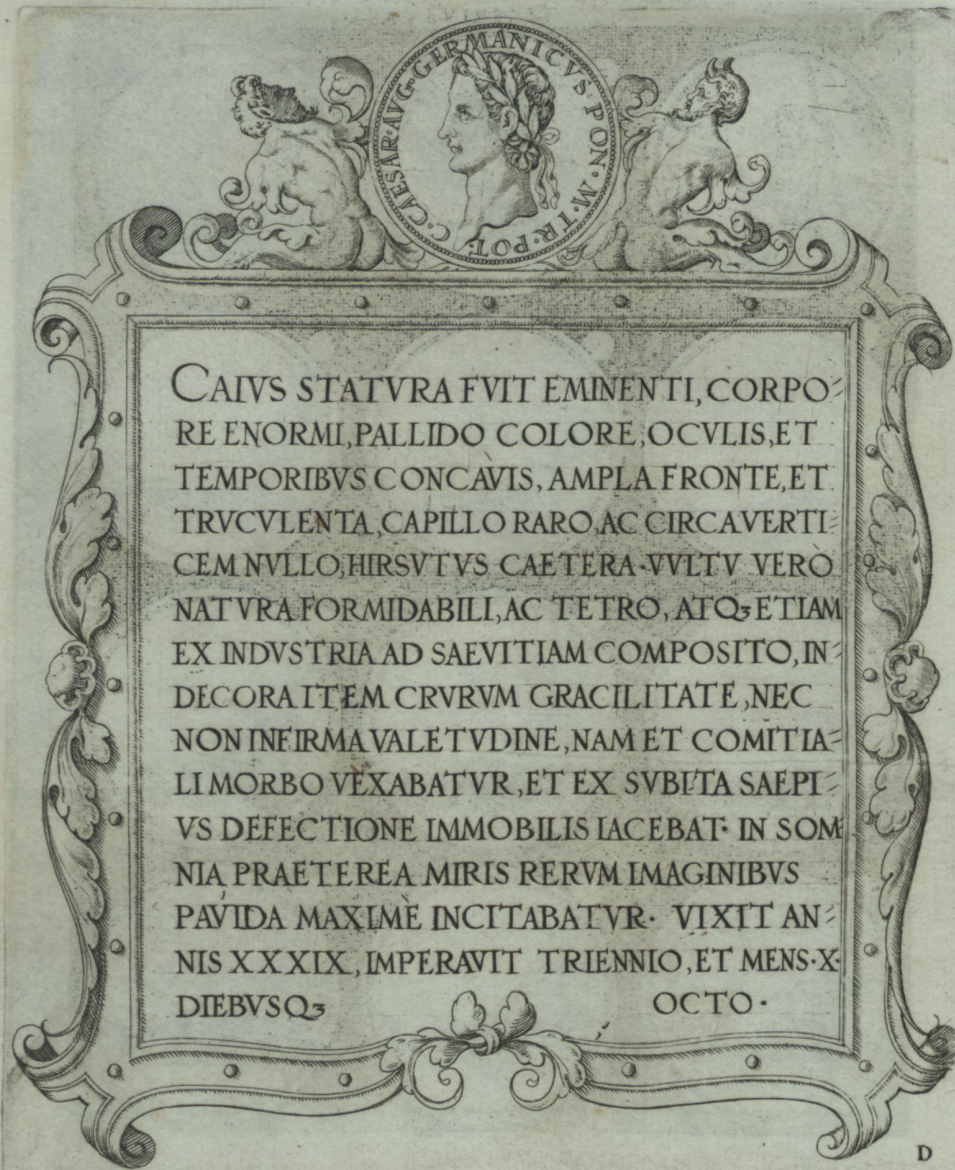 C·CAESAR·AVG·GERMANICVS·PON·M·TR·POT·
CAIVS STATVRA FVIT EMINENTI, CORPO-
RE ENORMI, PALLIDO COLORE, OCVLIS, ET
TEMPORIBVS CONCAVIS, AMPLA FRONTE, ET
TRVCVLENTA, CAPILLO RARO, AC CIRCA VERTI-
CEM NVLLO, HIRSVTVS CAETERA·VVLTV VERÒ
NATVRA FORMIDABILI, AC TETRO, ATQꝫ ETIAM
EX INDVSTRIA AD SAEVITIAM COMPOSITO, IN-
DECORA ITEM CRVRVM GRACILITATE, NEC
NON INFIRMA VALETVDINE, NAM ET COMITIA-
LI MORBO VEXABATVR, ET EX SVBITA SAEPI-
VS DEFECTIONE IMMOBILIS IACEBAT· IN SOM
NIA PRAETEREA MIRIS RERVM IMAGINIBVS
PAVIDA MAXIMÈ INCITABATVR· VIXIT AN-
NIS XXXIX, IMPERAVIT TRIENNIO, ET MENS·X·
DIEBVSQꝫ OCTO·
D